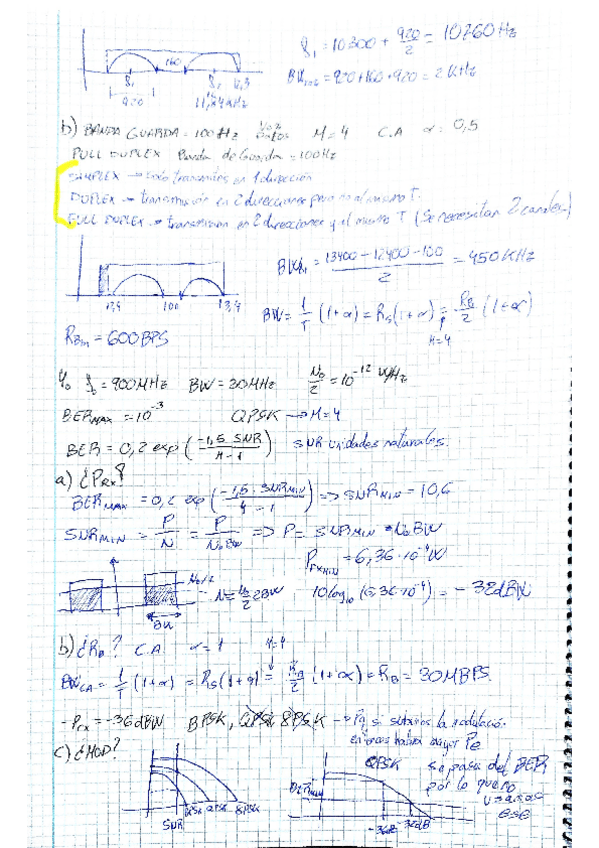 f1 = 10300 + 920/2 = 10760 Hz
160
f1 f2 12,3
920 11,84 kHz
BWtot = 920+160+920 = 2 kHz
b) BANDA GUARDA = 100 Hz M=4 C.A α = 0,5
FULL DUPLEX Banda de Guarda = 100Hz
SIMPLEX → solo transmites en 1 dirección
DUPLEX → transmisión en 2 direcciones pero no al mismo T.
FULL DUPLEX → transmisión en 2 direcciones y al mismo T (Se necesitan 2 canales)
BW1 = 13400 - 12400 - 100 / 2 = 450 KHz
100 13,4
BW = 1/T (1+α) = Rs(1+α) = RB/2 (1+α)
M=4
RBin = 600BPS
f0 = 900MHz BW = 30MHz N0/2 = 10^-12 W/Hz
BERMAX = 10^-3 QPSK → M=4
BER = 0,2 exp(-1,5 SNR / M-1) SNR unidades naturales
a) ¿PRX?
BERMAX = 0,2 exp(-1,5 · SNRMIN / 4-1) ⇒ SNRMIN = 10,6
SNRMIN = P/N = P/N0BW ⇒ P = SNRMIN · N0BW
PRXMIN = 6,36·10^-4 W
N0/2
N = N0/2 2BW 10log10 (6,36·10^-4) = -32dBW
BW
b) ¿RB? C.A α = 1 M=4
BWCA = 1/T (1+α) = Rs(1+α) = RB/2 (1+α) = RB = 30MBPS.
-PRX = -36dBW BPSK, QPSK 8PSK → Pq si subimos la modulación
entonces habrá mayor Pe
c) ¿MOD?
QPSK se pasa del BER
por lo que no
usamos
ese
SNR
-36dB -32dB